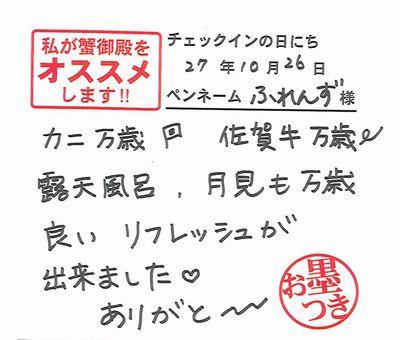 私が蟹御殿を
オススメ
します!!
チェックインの日にち
27年10月26日
ペンネーム ふれんず様
カニ万歳 佐賀牛万歳
露天風呂、月見も万歳
良い リフレッシュが
出来ました♡
ありがと〜〜
お墨つき